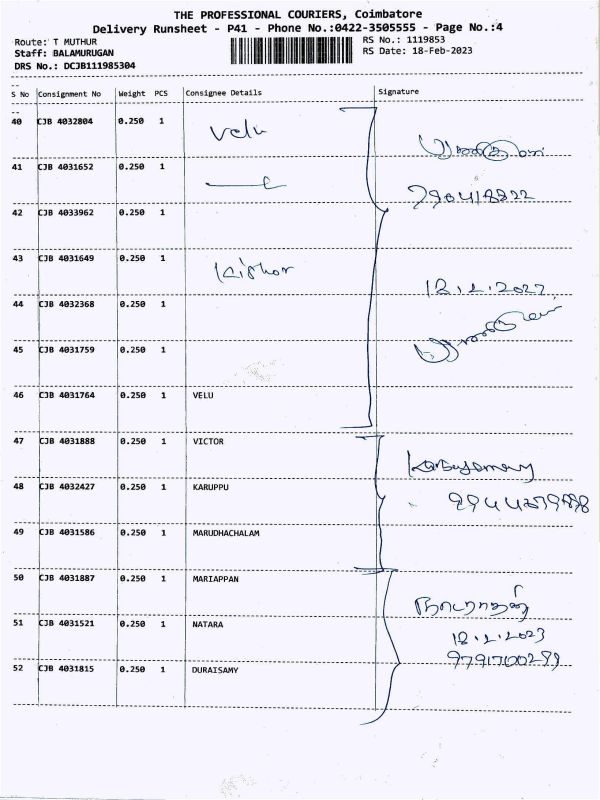 THE PROFESSIONAL COURIERS, Coimbatore
Delivery Runsheet - P41 - Phone No.:0422-3505555 - Page No.:4
Route: T MUTHUR
RS No.: 1119853
Staff: BALAMURUGAN
RS Date: 18-Feb-2023
DRS No.: DCJB111985304
S No Consignment No Weight PCS Consignee Details Signature
40 CJB 4032804 0.250 1 Velu
41 CJB 4031652 0.250 1
42 CJB 4033962 0.250 1
43 CJB 4031649 0.250 1 Kishor
44 CJB 4032368 0.250 1
45 CJB 4031759 0.250 1
46 CJB 4031764 0.250 1 VELU
47 CJB 4031888 0.250 1 VICTOR
48 CJB 4032427 0.250 1 KARUPPU
49 CJB 4031586 0.250 1 MARUDHACHALAM
50 CJB 4031887 0.250 1 MARIAPPAN
நடராஜன்
51 CJB 4031521 0.250 1 NATARA
18.2.2023
52 CJB 4031815 0.250 1 DURAISAMY